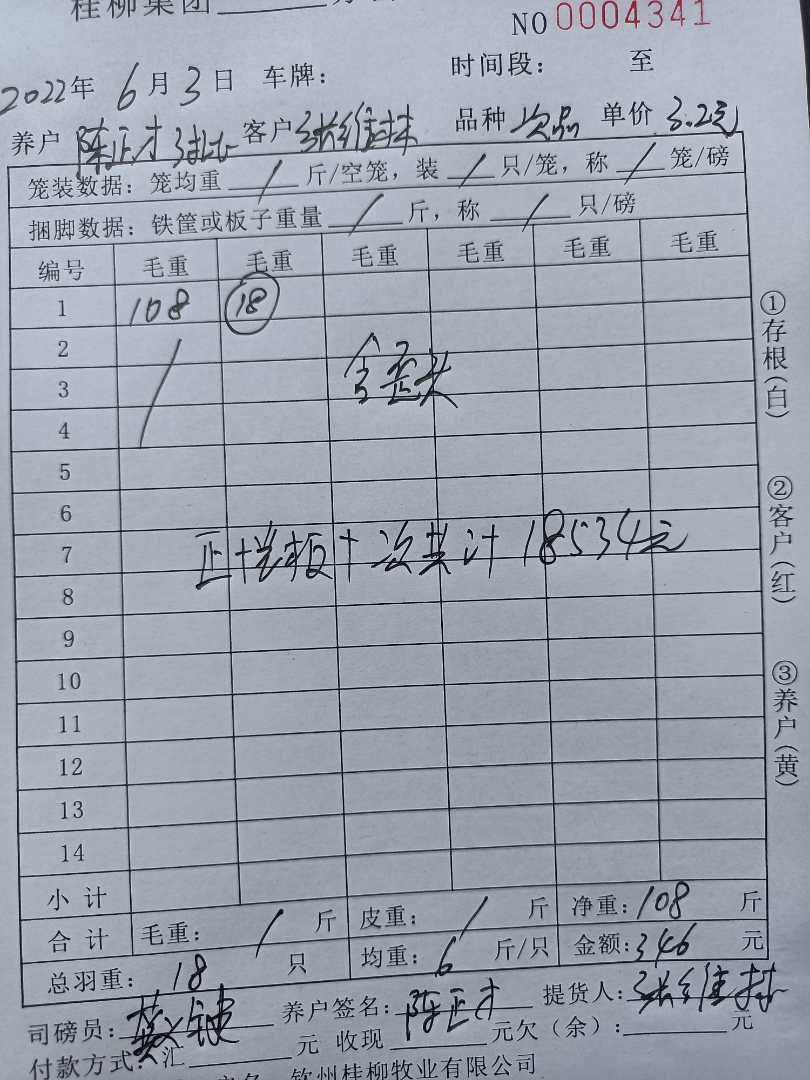 桂柳集团
NO 0004341
2022年 6月3日 车牌： 时间段： 至
养户 陈正才 客户 张维林 品种 次品 单价 3.2元
笼装数据：笼均重 / 斤/空笼，装 / 只/笼，称 / 笼/磅
捆脚数据：铁筐或板子重量 / 斤，称 / 只/磅
编号 毛重 毛重 毛重 毛重 毛重 毛重
1 108 18
2
3 含歪头
4
5
6
7 正+光板+次共计 18534元
8
9
10
11
12
13
14
小计
合计 毛重： / 斤 皮重： / 斤 净重：108 斤
总羽重： 18 只 均重：6 斤/只 金额：346 元
司磅员： 养户签名：陈正才 提货人：张维林
付款方式：汇 元 收现 元欠（余）： 元
钦州桂柳牧业有限公司
①存根（白）
②客户（红）
③养户（黄）